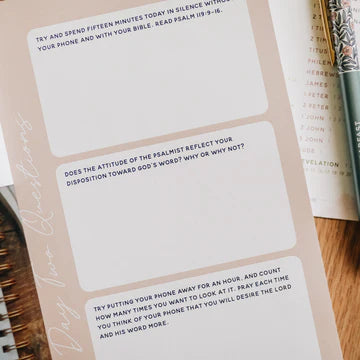 TRY AND SPEND FIFTEEN MINUTES TODAY IN SILENCE WITHOUT
YOUR PHONE AND WITH YOUR BIBLE. READ PSALM 119:9-16.
DOES THE ATTITUDE OF THE PSALMIST REFLECT YOUR
DISPOSITION TOWARD GOD'S WORD? WHY OR WHY NOT?
TRY PUTTING YOUR PHONE AWAY FOR AN HOUR. AND COUNT
HOW MANY TIMES YOU WANT TO LOOK AT IT. PRAY EACH TIME
YOU THINK OF YOUR PHONE THAT YOU WILL DESIRE THE LORD
AND HIS WORD MORE.
Day Two Questions
HEBREWS
JAMES
1 PETER
2 PETER
1 JOHN
2 JOHN
3 JOHN